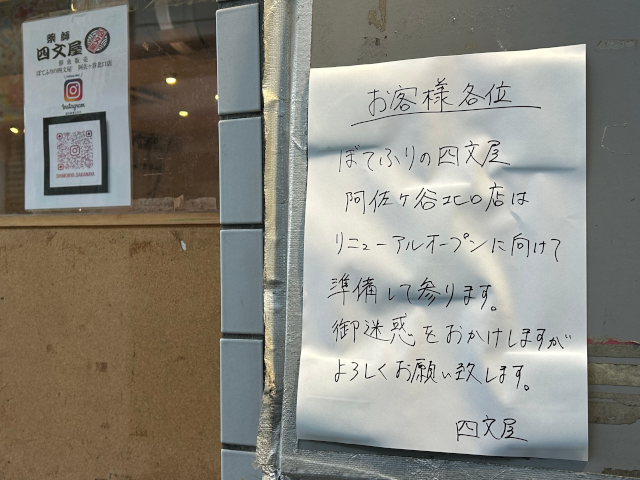 薬師
四文屋
鮮魚販売
ぼてふりの四文屋 阿佐ヶ谷北口店
Instagram
SHIMONYA.SAKANAYA
お客様各位
ぼてふりの四文屋
阿佐ケ谷北口店は
リニューアルオープンに向けて
準備して参ります。
御迷惑をおかけしますが
よろしくお願い致します。
四文屋